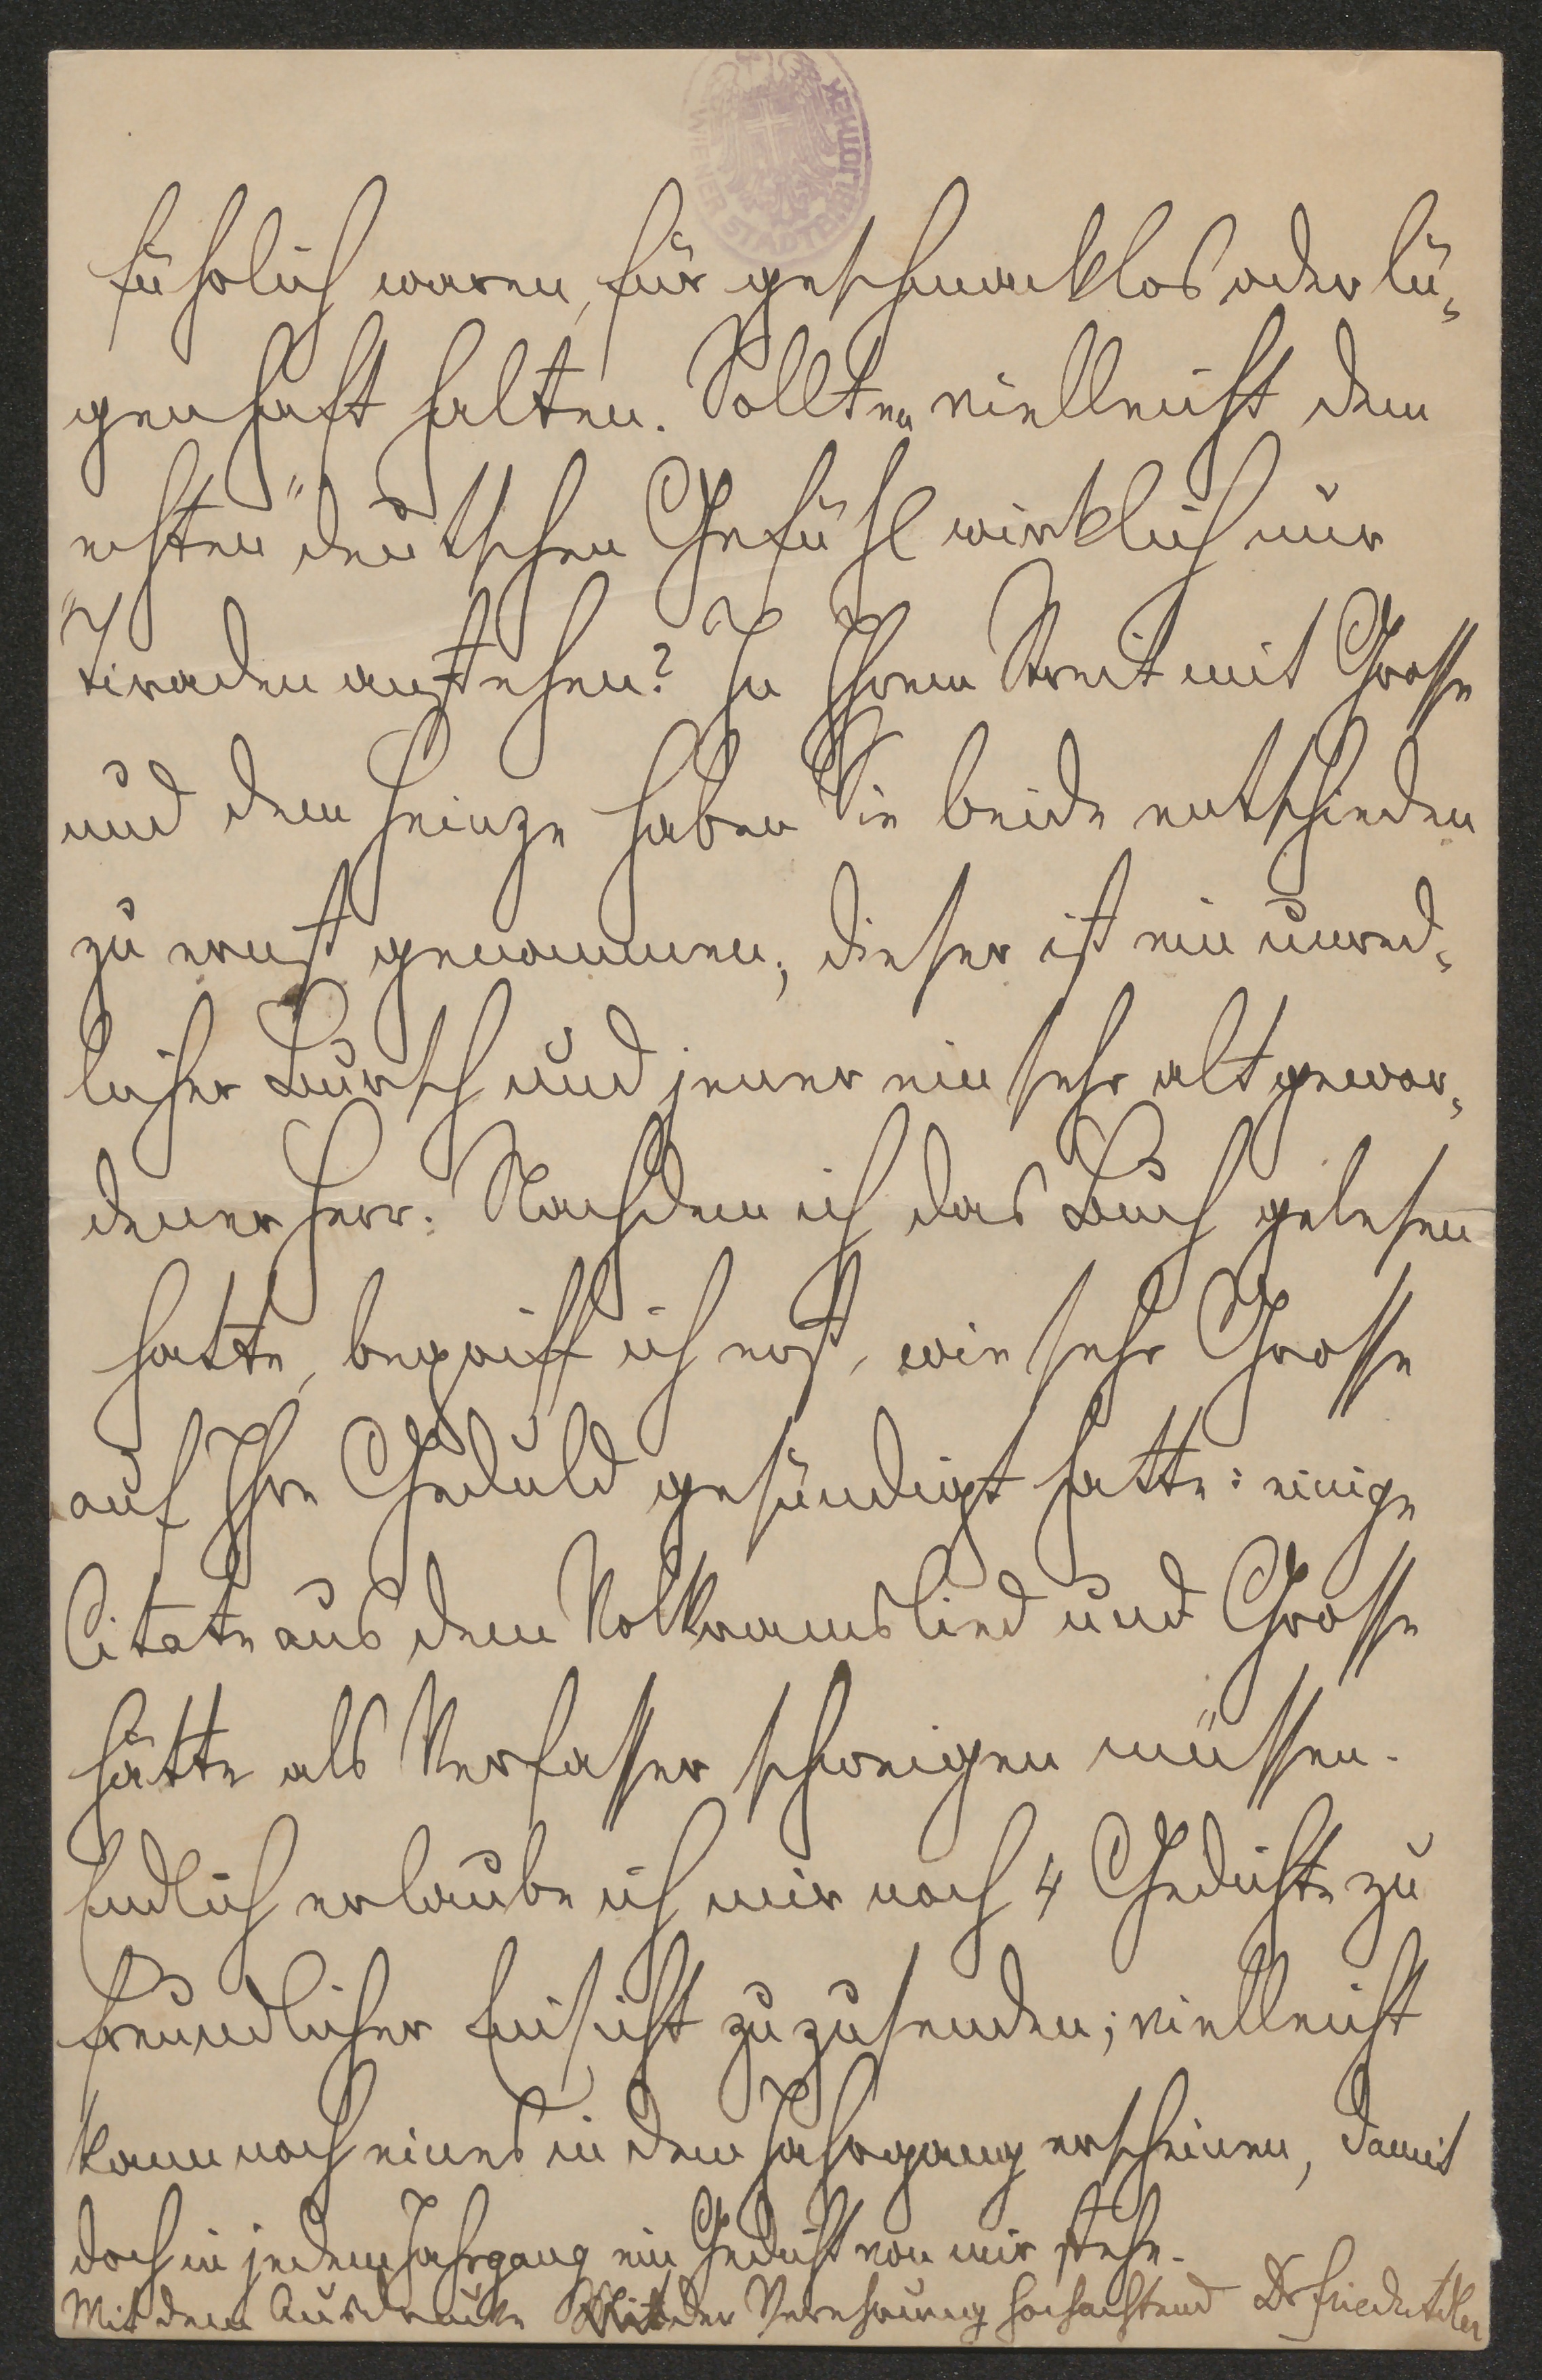 führlich waren, für geschmacklos oder lü-
genhaft halten. Sollten vielleicht dem
echten "deutschen Gefühl wirklich nur
"Tiraden anstehen? In Ihrem Streit mit Grosse
und dem Heinze haben Sie beide entschieden
zu ernst genommen; dieser ist ein unred-
licher Bursch und jener ein sehr alt gewor-
dener Herr. Nachdem ich das Buch gelesen
hatte, begriff ich erst, wie sehr Grosse
auf Ihre Geduld gesündigt hatte: einige
Citate aus dem Volkramslied und Grosse
hätte als Verfasser schweigen müssen.
Endlich erlaube ich mir noch 4 Gedichte zu
freundlicher Einsicht zuzusenden; vielleicht
kann noch eines in dem Jahrgang erscheinen, damit
doch in jedem Jahrgang ein Gedicht von mir stehe.
Mit dem Ausdrucke der Verehrung hochachtend Dr Friedr Adler
WIENER STADTBIBLIOTHEK